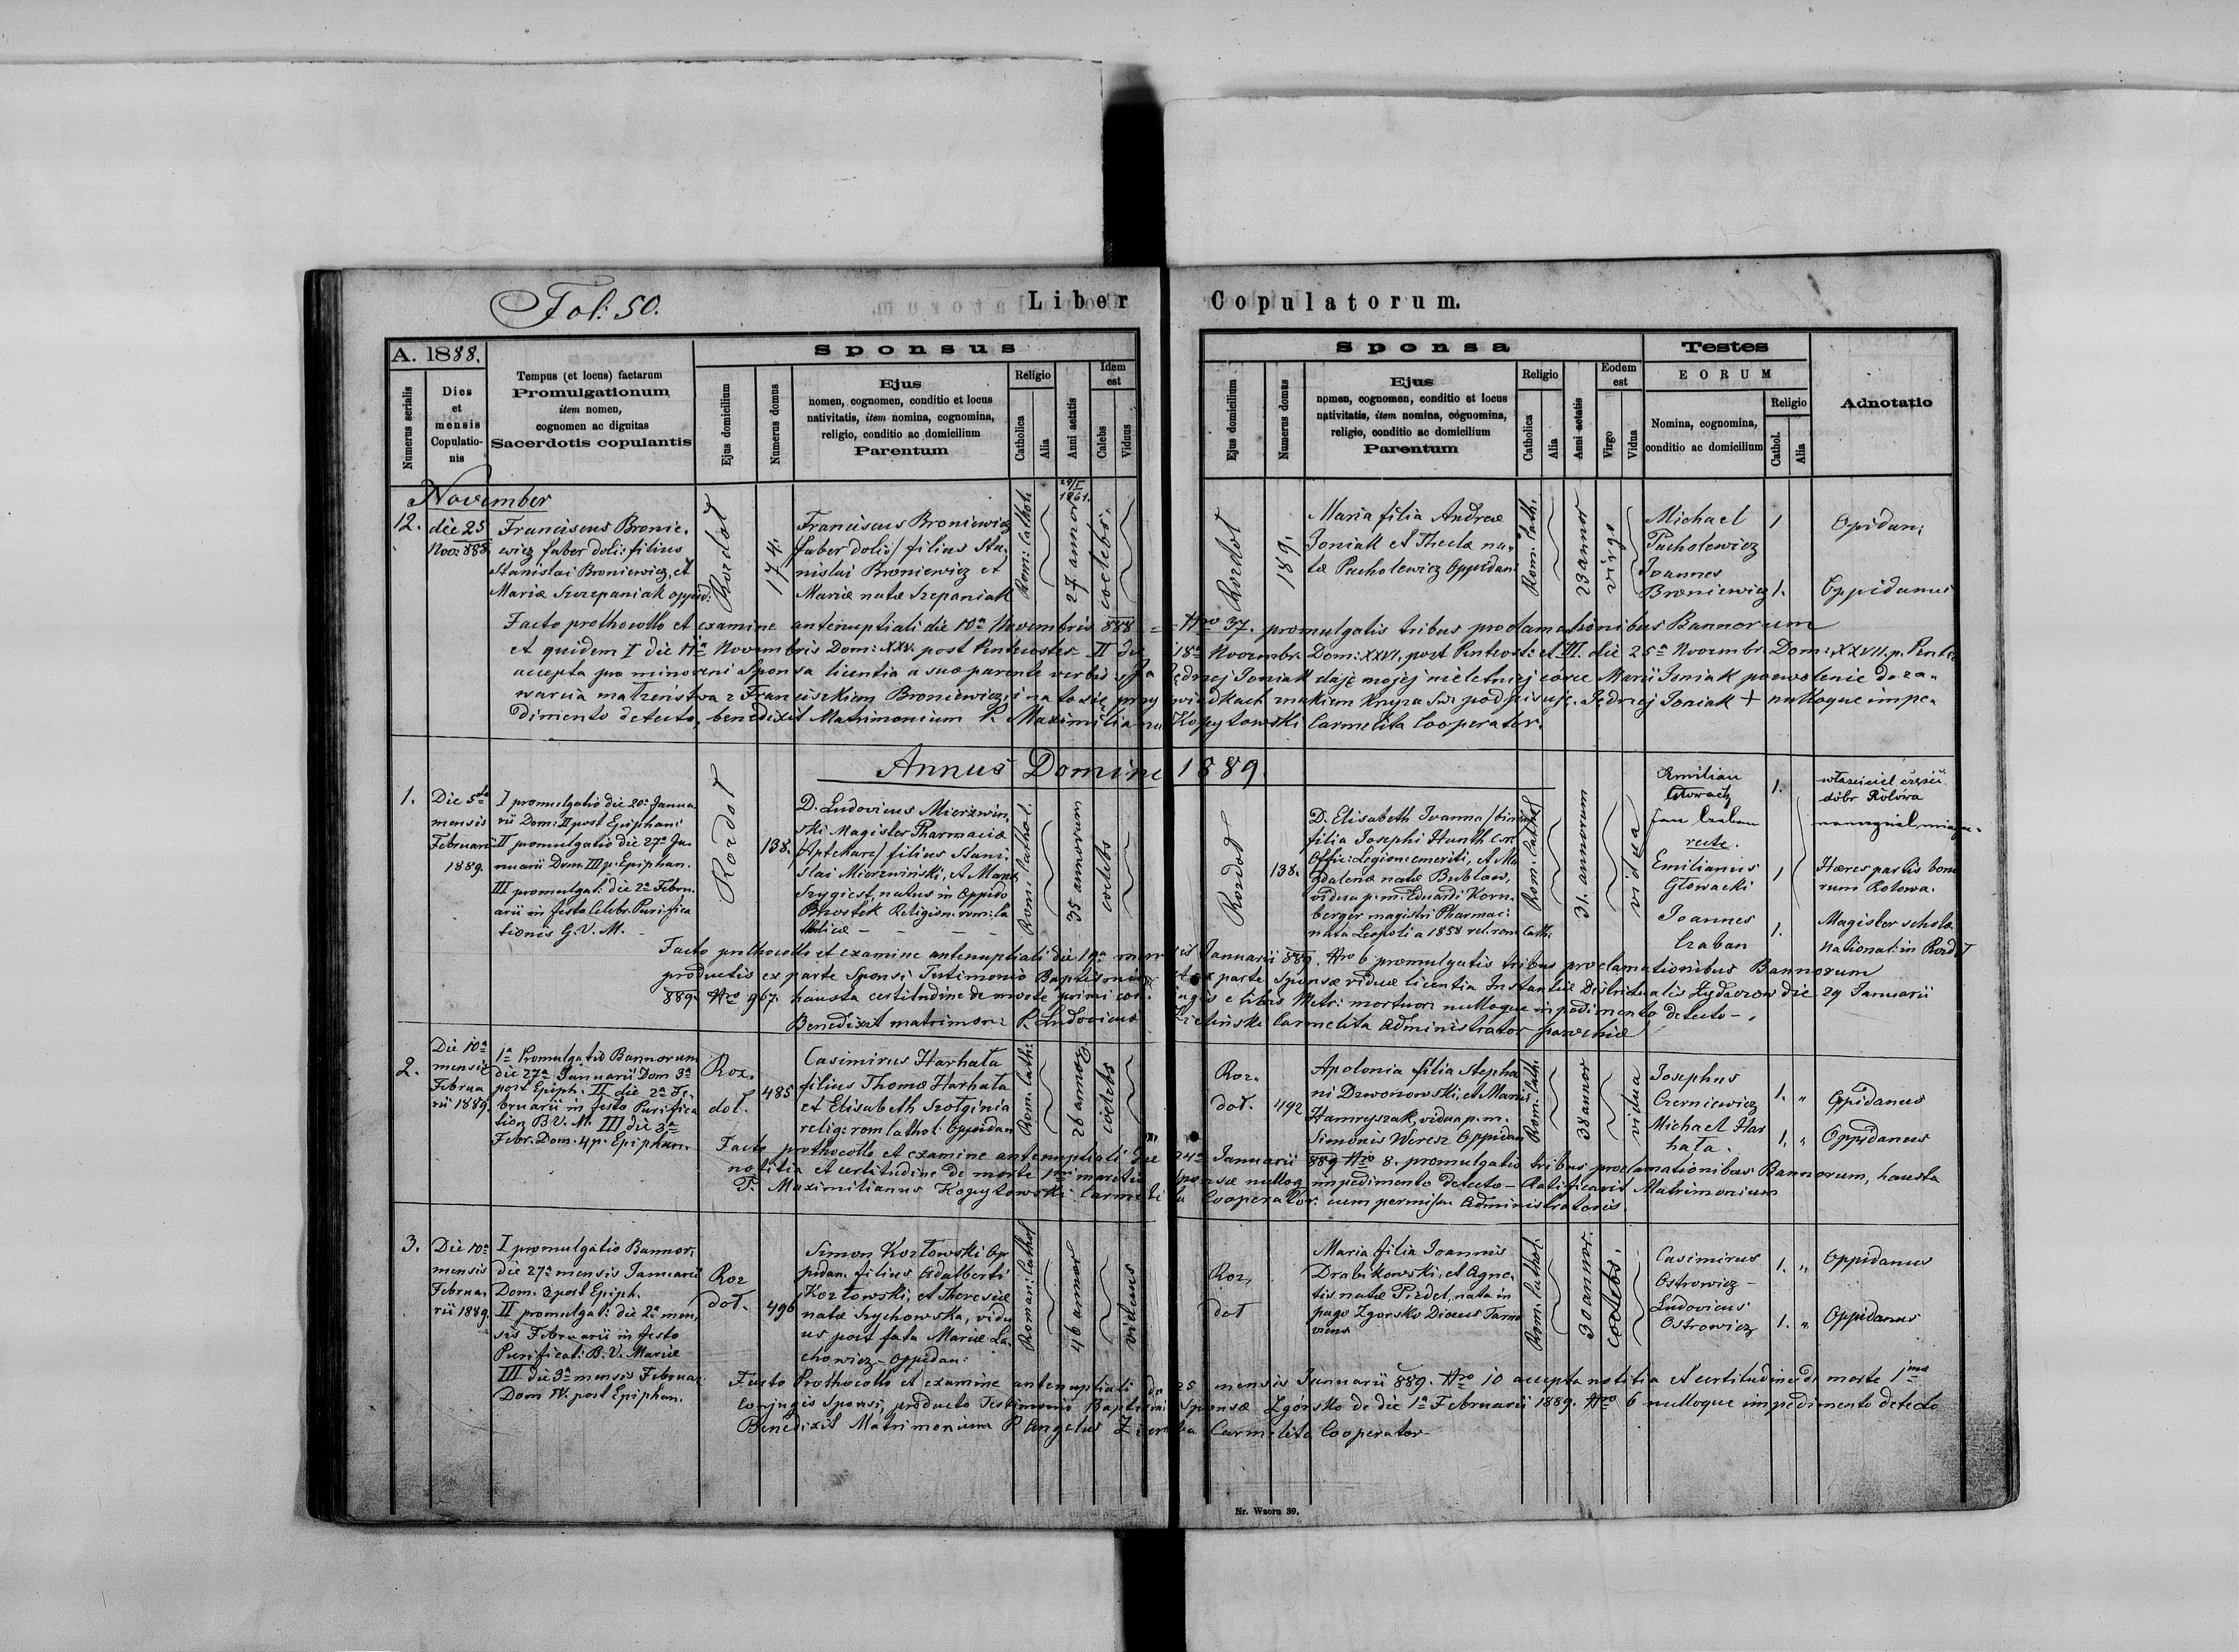 Fol: 50.
Liber Copulatorum.
A. 1888.
Numerus serialis
Dies et mensis Copulationis
Tempus (et locus) factarum
Promulgationum
item nomen,
cognomen ac dignitas
Sacerdotis copulantis
Sponsus
Ejus domicilium
Numerus domus
Ejus
nomen, cognomen, conditio et locus
nativitatis, item nomina, cognomina,
religio, conditio ac domicilium
Parentum
Religio
Catholica
Alia
Anni aetatis
Idem est
Calebs
Viduus
Sponsa
Ejus domicilium
Numerus domus
Ejus
nomen, cognomen, conditio et locus
nativitatis, item nomina, cognomina,
religio, conditio ac domicilium
Parentum
Religio
Catholica
Alia
Anni aetatis
Eodem est
Virgo
Vidua
Testes
EORUM
Nomina, cognomina,
conditio ac domicilium
Religio
Cathol.
Alia
Adnotatio
November
12.
die 25
Nov: 888.
Franciscus Bronie-
wicz faber doli: filius
Stanislai Broniewicz, et
Mariæ Szczepaniak oppid:
Rozdoł
174.
Franciscus Broniewicz
faber dolio/ filius Sta-
nislai Broniewicz et
Mariæ natæ Szepaniak
Rom: Cathol.
1861.
27 annor
coelebs.
Rozdoł
189.
Maria filia Andreæ
Joniak et Thecla na-
tæ Pacholewicz Oppidani
Rom: Cath.
23 annor
virgo
Michael
Pacholewicz
1
Opidani
Joannes
Broniewicz
1.
Oppidanus
Facto prothocollo et examine antenuptiali die 10ª Novembris 888 = Nro 37. promulgatis tribus proclamationibus Bannorum
et quidem I die 11ª Novembris Dom: XXV. post Pentecostes II die 18ª Novembr. Dom: XXVI. post Pentecost: et III. die 25ª Novembr. Dom: XXVII. p. Pente
accepta pro minoreni Sponsa licentia a suo parente verbis "Ja Jędrzej Joniak daję mojej nieletniej córce Maryi Joniak pozwolenie do za-
warcia małżeństwa z Franciszkiem Broniewicz, i na to się przy świadkach znakiem Krzyża Św: podpisuję. Jędrzej Joniak + nulloque impe-
dimento detecto, benedixit Matrimonium P. Maximilianus Kopytowski Carmelita Cooperator.
Annus Domini 1889.
1.
Die 5ta
mensis
Februarii
1889.
I promulgatio die 20ª Janua
rii Dom: II post Epiphani
II promulgatio die 27ª Ja-
nuarii Dom. III p. Epiphan.
III promulgat: die 2ª Febru-
arii in festo Celebr. Purifica
tionis G. V. M.
Rozdoł
138.
D. Ludovicus Mierzwin-
ski Magister Pharmaciæ
/Aptekarz/ filius Stani-
slai Mierzwiński, et Mariæ
Szygiest, natus in Oppido
Religion. rom: Ca
tholicæ
Rom: Cathol.
35 annorum
coelebs
Rozdoł
138.
D. Elisabeth Joanna /binom/
filia Josephi Hunth
Offic: Legion: emeriti, et Ma
gdalenæ natæ Bublaw,
vidua p. m. Eduardi Korn-
berger magistri Pharmac:
nata Leopoli a 1858 rel: rom Cath:
Rom: Cathol
31. annorum
vidua
Emilian
Głowacki
1.
właściciel części
dóbr Rolowa
Jan Czaban
recte.
Emilianus
Głowacki
1
Hæres partis bono
rum Rolowa.
Joannes
Czaban
1.
Magister scholæ
national: in Rozdoł
Facto prothocollo et examine antenuptiali die 19ª mensis Januarii 889. Nro 6 promulgatis tribus proclamationibus Bannorum
productis ex parte Sponsi Testimonio Baptismi et ex parte Sponsæ viduæ licentia Instantiæ Districtualis Żydaczow die 29 Januarii
889. Nro 967. hausta certitudine de morte primi conjugis e libris Metr: mortuor: nulloque impedimento detecto
Benedixit matrimon: P. Ludovicus Zieliński Carmelita Administrator parochiæ
2.
Die 10ª
mensis
Februa
rii 1889.
1ª Promulgatio Bannorum
die 27ª Januarii Dom 3ª
post Epiph. II die 2ª Fe-
bruarii in festo Purifica
tion B. V. M. III die 3ª
Febr. Dom. 4 p. Epiphan.
Roz-
doł.
485
Casimirus Harhata
filius Thomæ Harhata
et Elisabeth Szołginia
relig: rom Cathol. Oppidan
Rom. Cath:
26 annor
coelebs
Roz-
doł.
492
Apolonia filia Stepha
ni Dzwonowski, et Mariæ
Hamryszak, vidua p. m.
Simonis Weresz Oppidan
Rom: Cath.
38 annor
vidua
Josephus
Czerniewicz
1. "
Oppidanus
Michael Har
hata.
1. "
Oppidanus
Facto prothocollo et examine antenuptiali die 24ª Januarii 889 Nro 8. promulgatis tribus proclamationibus Bannorum, hausta
notitia et certitudine de morte 1mi mariti Sponsæ nulloq impedimento detecto - Ratificavit Matrimonium
P. Maximilianus Kopytowski Carmelita Cooperator. cum permissu Administratoris.
3.
Die 10ª
mensis
Februa-
rii 1889.
I promulgatio Bannor:
die 27ª mensis Januarii
Dom. 3 post Epiph.
II promulgati: die 2ª men-
sis Februarii in festo
Purificat: B. V. Mariæ
III die 3ª mensis Februar
Dom IV. post Epiphan.
Roz
doł.
496
Simon Kozłowski Op
pidan. filius Adalberti
Kozłowski, et Theresiæ
natæ Szychowska, vidu
us post fata Mariæ La-
chowicz - Oppidan:
Roman: Cathol
46 annor
viduus
Roz,
doł
Maria filia Joannis
Drabikowski, et Agne-
tis natæ Pizdel, nata in
pago Zgorsko Dioces Tarno
viens
Rom: Cathol.
30 annor.
coelebs.
Casimirus
Ostrowicz -
1. "
Oppidanus
Ludovicus
Ostrowicz
1. "
Oppidanus
Facto Prothocollo et examine antenuptiali de 25 mensis Januarii 889. Nro 10 accepta notitia et certitudine de morte 1mæ
Conjugis Sponsi, producto Testimonio Baptismi Sponsæ Zgórsko de die 1ª Februarii 1889. Nro 6 nulloque impedimento detecto
Benedixit Matrimonium P Angelus Carmelita Cooperator-
Nr. Wzoru 39.